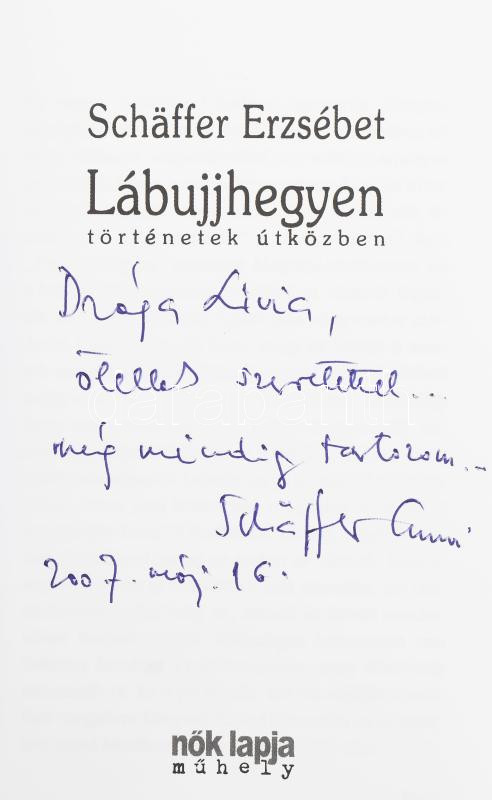 Schäffer Erzsébet
Lábujjhegyen
történetek útközben
Drága Livia,
ölellek szeretettel...
még mindig tartozom...
Schäffer
2007. máj. 16.
nők lapja
műhely